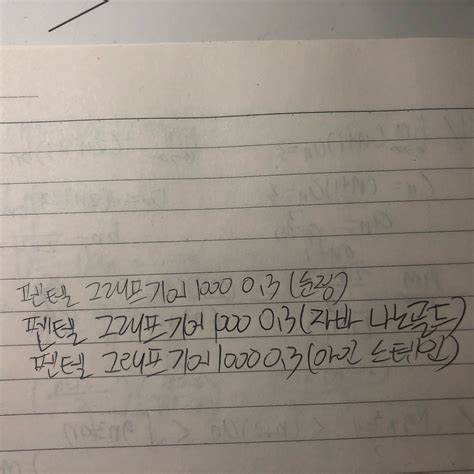 펜텔 그래프기어 1000 0.3 (순정)
펜텔 그래프기어 1000 0.3 (자바 나노골드)
펜텔 그래프기어 1000 0.3 (아인 스테인)